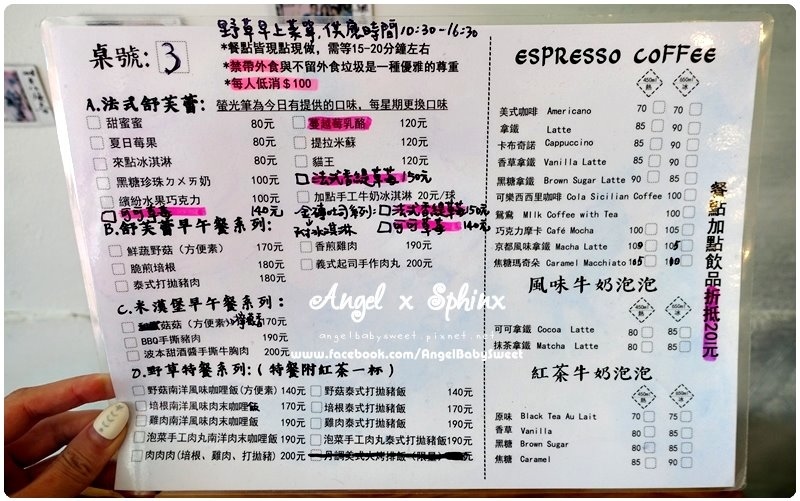 桌號: 3
野草早上菜單.供應時間10:30-16:30
*餐點皆現點現做，需等15-20分鐘左右
*禁帶外食與不留外食垃圾是一種優雅的尊重
*每人低消$100
A.法式舒芙蕾: 螢光筆為今日有提供的口味，每星期更換口味
甜蜜蜜 80元
蔓越莓乳酪 120元
夏日莓果 80元
提拉米蘇 120元
來點冰淇淋 80元
貓王 120元
黑糖珍珠ㄉㄨㄞ奶 100元
法式香緹草莓 150元
繽紛水果巧克力 100元
加點手工牛奶冰淇淋 20元/球
可可草莓 140元
金磚吐司系列: 法式香緹草莓150元
附冰淇淋 可可草莓 140元
B.舒芙蕾早午餐系列:
鮮蔬野菇（方便素） 170元
香煎雞肉 190元
脆煎培根 180元
義式起司手作肉丸 200元
泰式打拋豬肉 180元
C.米漢堡早午餐系列:
菇菇（方便素） 170元
BBQ手撕豬肉 190元
波本甜酒醬手撕牛胸肉 200元
D.野草特餐系列:(特餐附紅茶一杯)
野菇南洋風味咖哩飯(方便素) 140元
野菇泰式打拋豬飯 140元
培根南洋風味肉末咖哩飯 170元
培根泰式打拋豬飯 170元
雞肉南洋風味肉末咖哩飯 190元
雞肉泰式打拋豬飯 190元
泡菜手工肉丸南洋肉末咖哩飯 190元
泡菜手工肉丸泰式打拋豬飯190元
肉肉肉(培根、雞肉、打拋豬) 200元
丹調美式火烤排飯（限量）
ESPRESSO COFFEE
450ml 熱 650ml 冰
美式咖啡 Americano 70 70
拿鐵 Latte 85 90
卡布奇諾 Cappuccino 85 90
香草拿鐵 Vanilla Latte 85 90
黑糖拿鐵 Brown Sugar Latte 90 85
可樂西西里咖啡 Cola Sicilian Coffee 100
鴛鴦 Milk Coffee with Tea 100
巧克力摩卡 Café Mocha 100 105
京都風味拿鐵 Macha Latte
焦糖瑪奇朵 Caramel Macchiato
餐點加點飲品折抵20元
風味牛奶泡泡
450ml 熱 650ml 冰
可可拿鐵 Cocoa Latte 80 85
抹茶拿鐵 Matcha Latte 80 85
紅茶牛奶泡泡
450ml 熱 650ml 冰
原味 Black Tea Au Lait 70 75
香草 Vanilla 80 85
黑糖 Brown Sugar 80 85
焦糖 Caramel 85 90
Angel x Sphinx
angelbabysweet.pixnet.net
www.facebook.com/AngelBabySweet